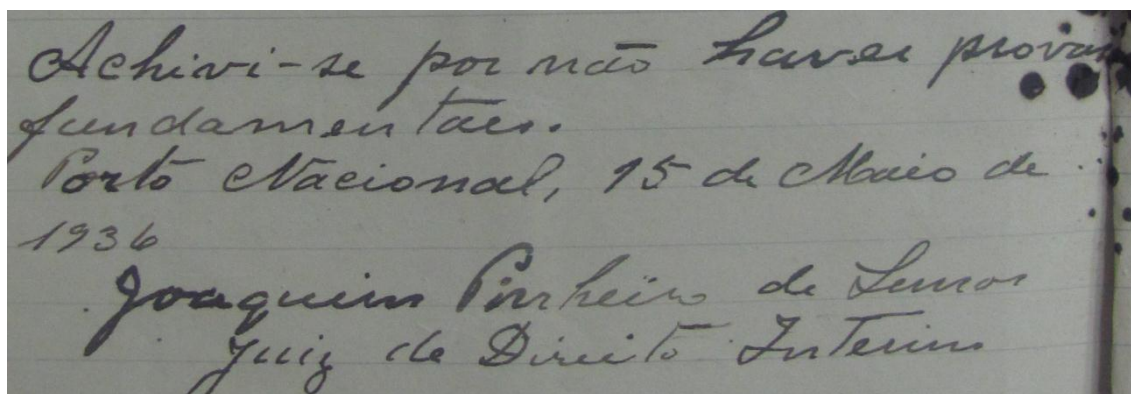 Achivi-se por não haver provas
fundamentaes.
Porto Nacional, 15 de Maio de
1936
Joaquim Pinheiro de Lemos
Juiz de Direito Interino